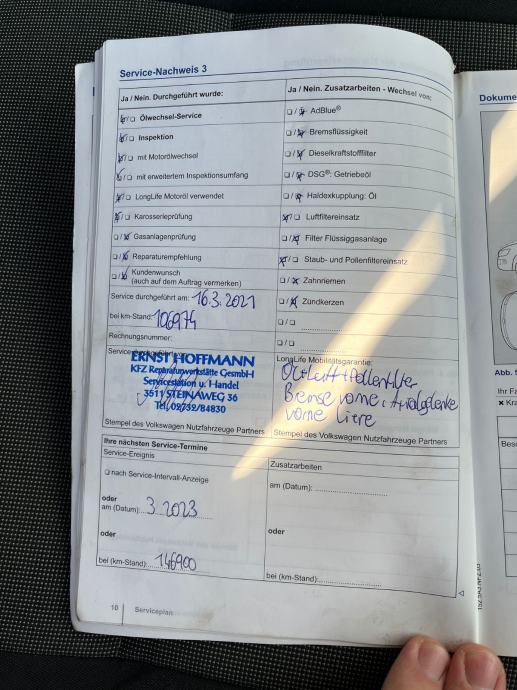 Service-Nachweis 3
Ja / Nein. Durchgeführt wurde:
Ölwechsel-Service
Inspektion
mit Motorölwechsel
mit erweitertem Inspektionsumfang
LongLife Motoröl verwendet
Karosserieprüfung
Gasanlagenprüfung
Reparaturempfehlung
Kundenwunsch
(auch auf dem Auftrag vermerken)
Service durchgeführt am: 16.3.2021
bei km-Stand: 106974
Rechnungsnummer:
ERNST HOFFMANN
KFZ Reparaturwerkstätte GesmbH
Servicestation u. Handel
3511 STEINAWEG 36
Tel. 02732/84830
Stempel des Volkswagen Nutzfahrzeuge Partners
Ja / Nein. Zusatzarbeiten - Wechsel von:
AdBlue®
Bremsflüssigkeit
Dieselkraftstofffilter
DSG®: Getriebeöl
Haldexkupplung: Öl
Luftfiltereinsatz
Filter Flüssiggasanlage
Staub- und Pollenfiltereinsatz
Zahnriemen
Zündkerzen
LongLife Mobilitätsgarantie:
Öl+Luft+Pollenfilter
Bremse vorne,
vorne
Stempel des Volkswagen Nutzfahrzeuge Partners
Ihre nächsten Service-Termine
Service-Ereignis
nach Service-Intervall-Anzeige
oder
am (Datum): 3.2023
oder
bei (km-Stand): 146900
Zusatzarbeiten
am (Datum):
oder
bei (km-Stand):
10 | Serviceplan
Dokume
Abb. 5
Ihr Fa